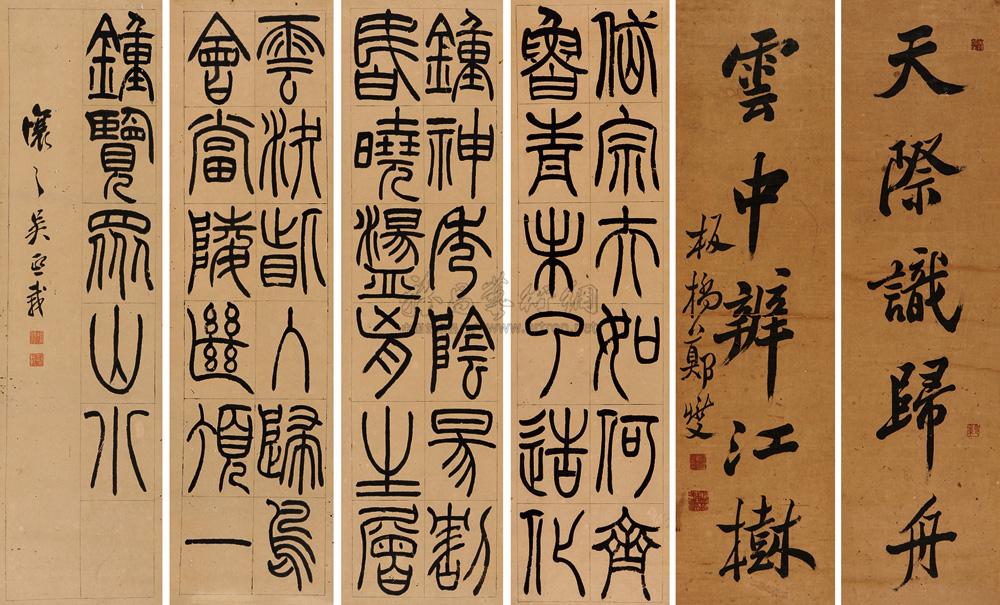 天際識歸舟
雲中辨江樹
板橋鄭燮
岱宗夫如何齊
魯青未了造化
鍾神秀陰昜割
昏曉盪胸生層
雲決眥入歸鳥
會當陵絕頂一
鍾覽眾山小
讓之吳熙載